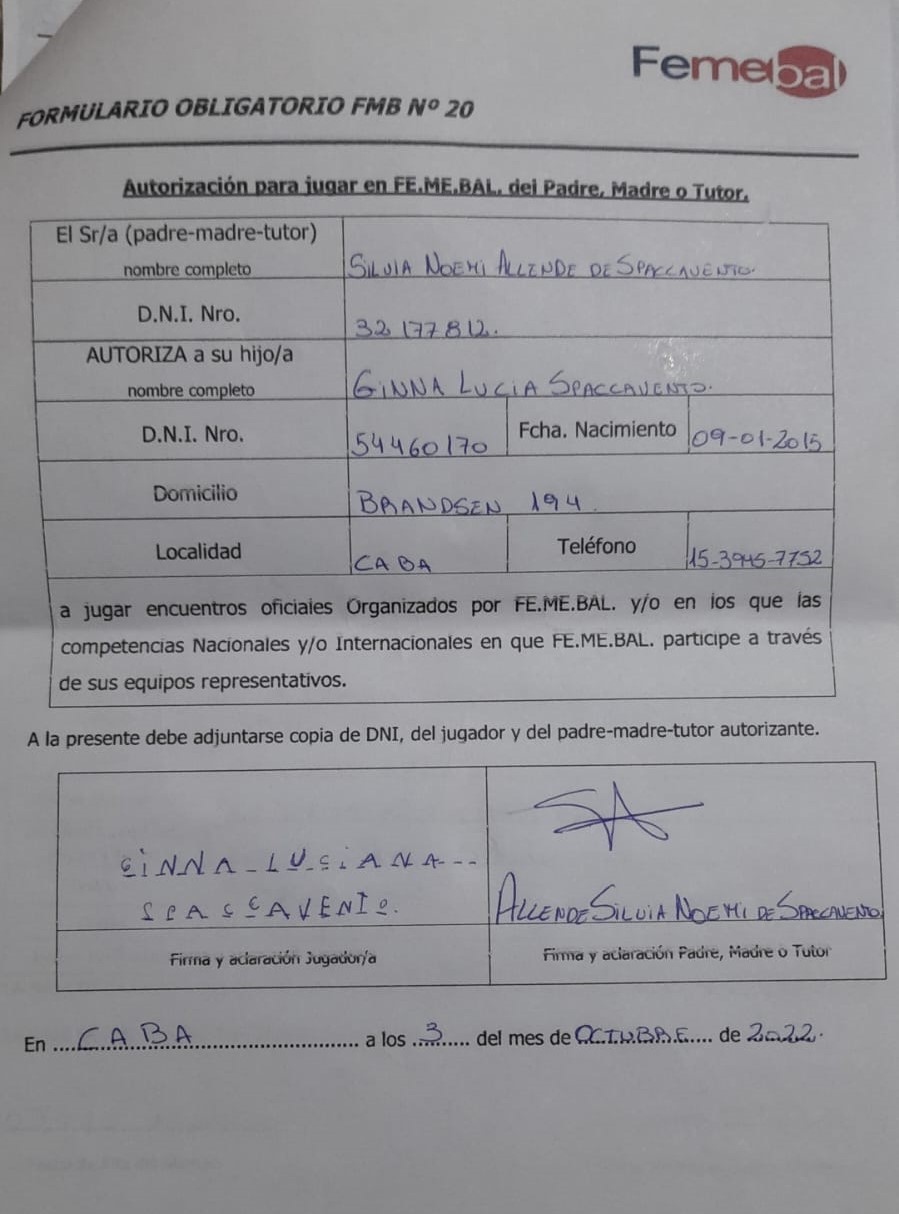 Femebal
FORMULARIO OBLIGATORIO FMB Nº 20
Autorización para jugar en FE.ME.BAL. del Padre, Madre o Tutor.
El Sr/a (padre-madre-tutor)
nombre completo
SILVIA NOEMI ALLENDE DE SPACCAVENTO.
D.N.I. Nro.
32177812.
AUTORIZA a su hijo/a
nombre completo
GINNA LUCIA SPACCAVENTO.
D.N.I. Nro. 54460170 Fcha. Nacimiento 09-01-2015
Domicilio BRANDSEN 194.
Localidad CABA Teléfono 15-3945-7752
a jugar encuentros oficiales Organizados por FE.ME.BAL. y/o en los que las
competencias Nacionales y/o Internacionales en que FE.ME.BAL. participe a través
de sus equipos representativos.
A la presente debe adjuntarse copia de DNI, del jugador y del padre-madre-tutor autorizante.
GINNA - LUCIANA - -
SPACCAVENTO.
ALLENDE SILVIA NOEMI DE SPACCAVENTO
Firma y aclaración Jugador/a
Firma y aclaración Padre, Madre o Tutor
En ....CABA.................... a los ..3..... del mes de OCTUBRE.... de 2022.